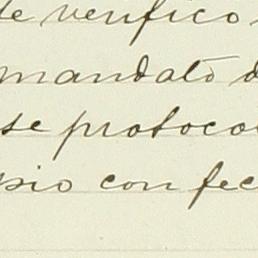 de verifico
mandato d
se protoco
pio con fec